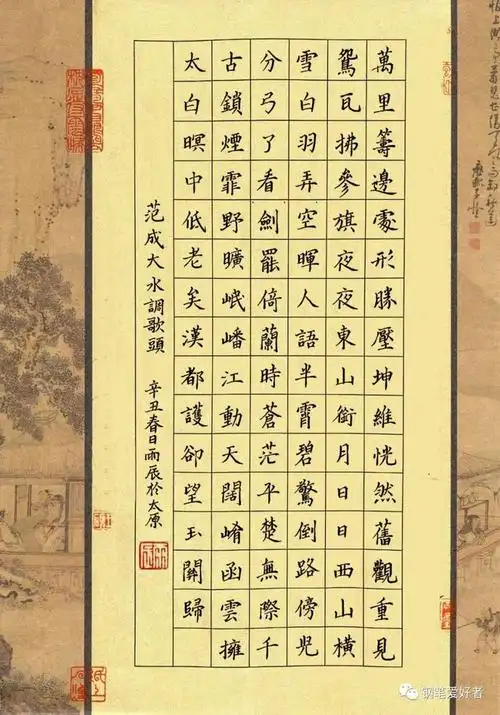 萬里籌邊處形勝壓坤維恍然舊觀重見
鴛瓦拂參旗夜夜東山銜月日日西山橫
雪白羽弄空暉人語半霄碧驚倒路傍兒
分弓了看劍罷倚蘭時蒼茫平楚無際千
古鎖煙霏野曠岷嶓江動天闊崤函雲擁
太白暝中低老矣漢都護卻望玉關歸
范成大水調歌頭 辛丑春日雨辰於太原
钢笔爱好者